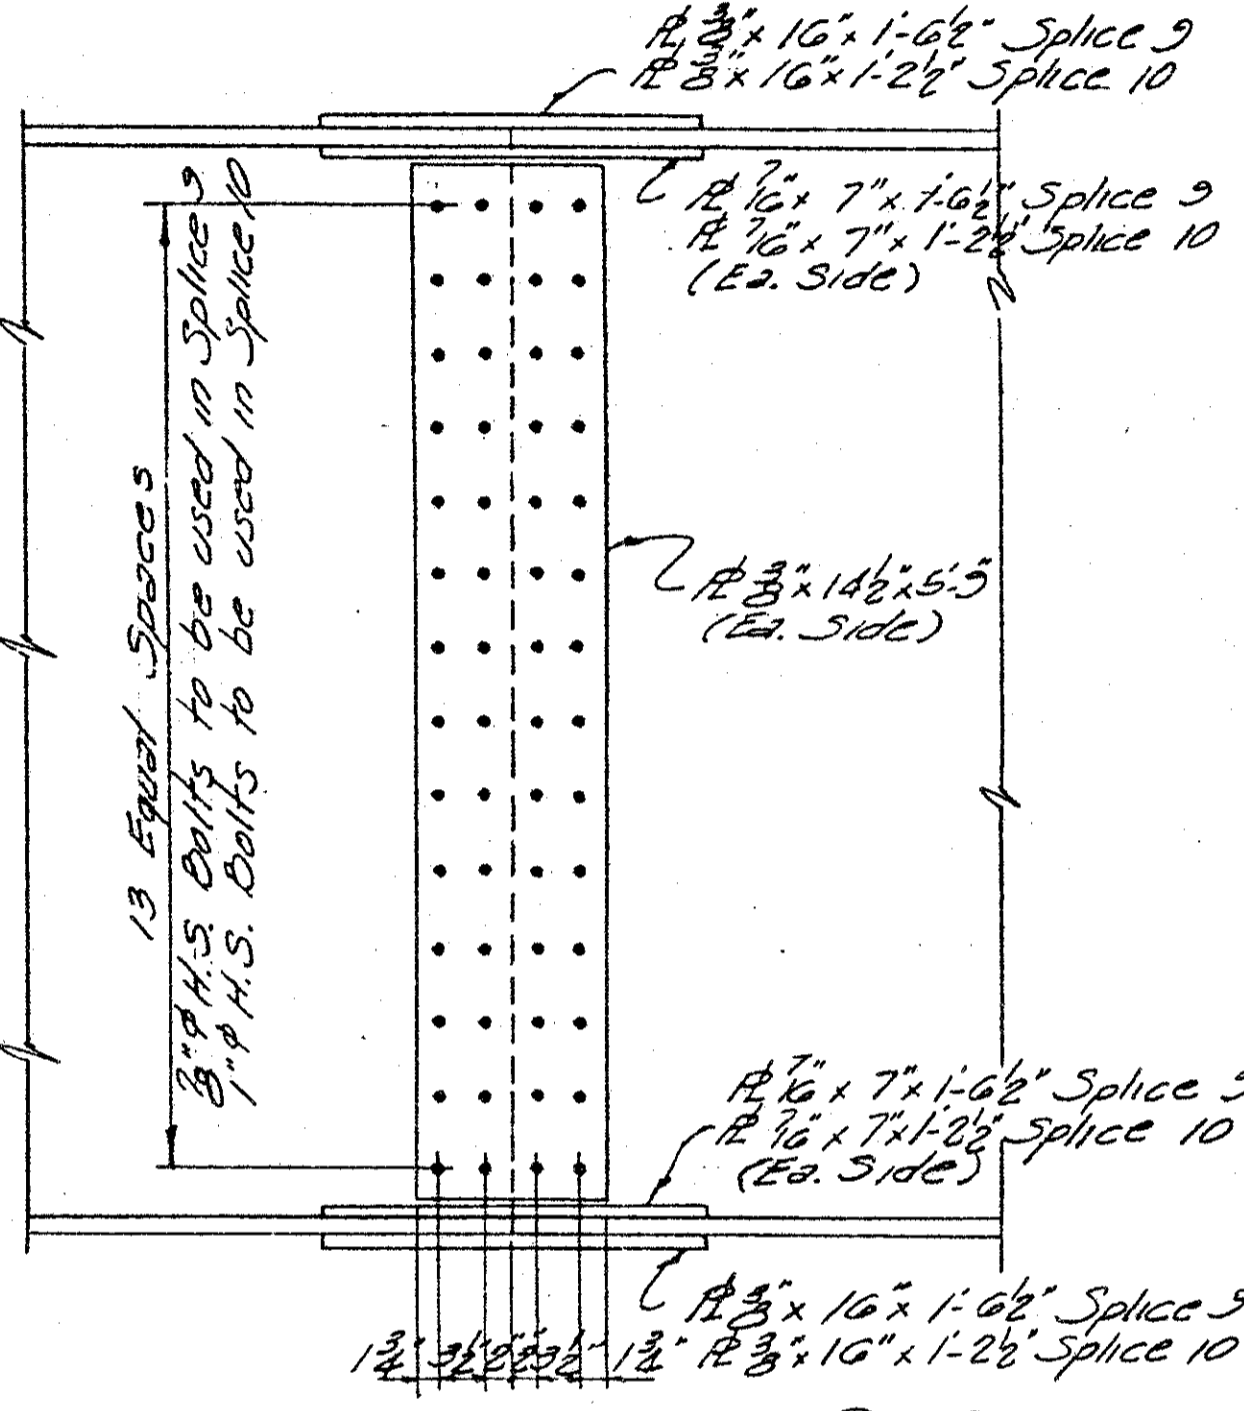 ℄ 3/8" x 16" x 1'-6 1/2" Splice 9
℄ 3/8" x 16" x 1'-2 1/2" Splice 10
℄ 7/16" x 7" x 1'-6 1/2" Splice 9
℄ 7/16" x 7" x 1'-2 1/2" Splice 10
(Ea. Side)
13 Equal Spaces
7/8" φ H.S. Bolts to be used in Splice 9
1" φ H.S. Bolts to be used in Splice 10
℄ 3/8" x 14 1/2" x 5'-9"
(Ea. Side)
℄ 7/16" x 7" x 1'-6 1/2" Splice 9
℄ 7/16" x 7" x 1'-2 1/2" Splice 10
(Ea. Side)
℄ 3/8" x 16" x 1'-6 1/2" Splice 9
℄ 3/8" x 16" x 1'-2 1/2" Splice 10
1 3/4" 3 1/2" 2" 2" 3 1/2" 1 3/4"